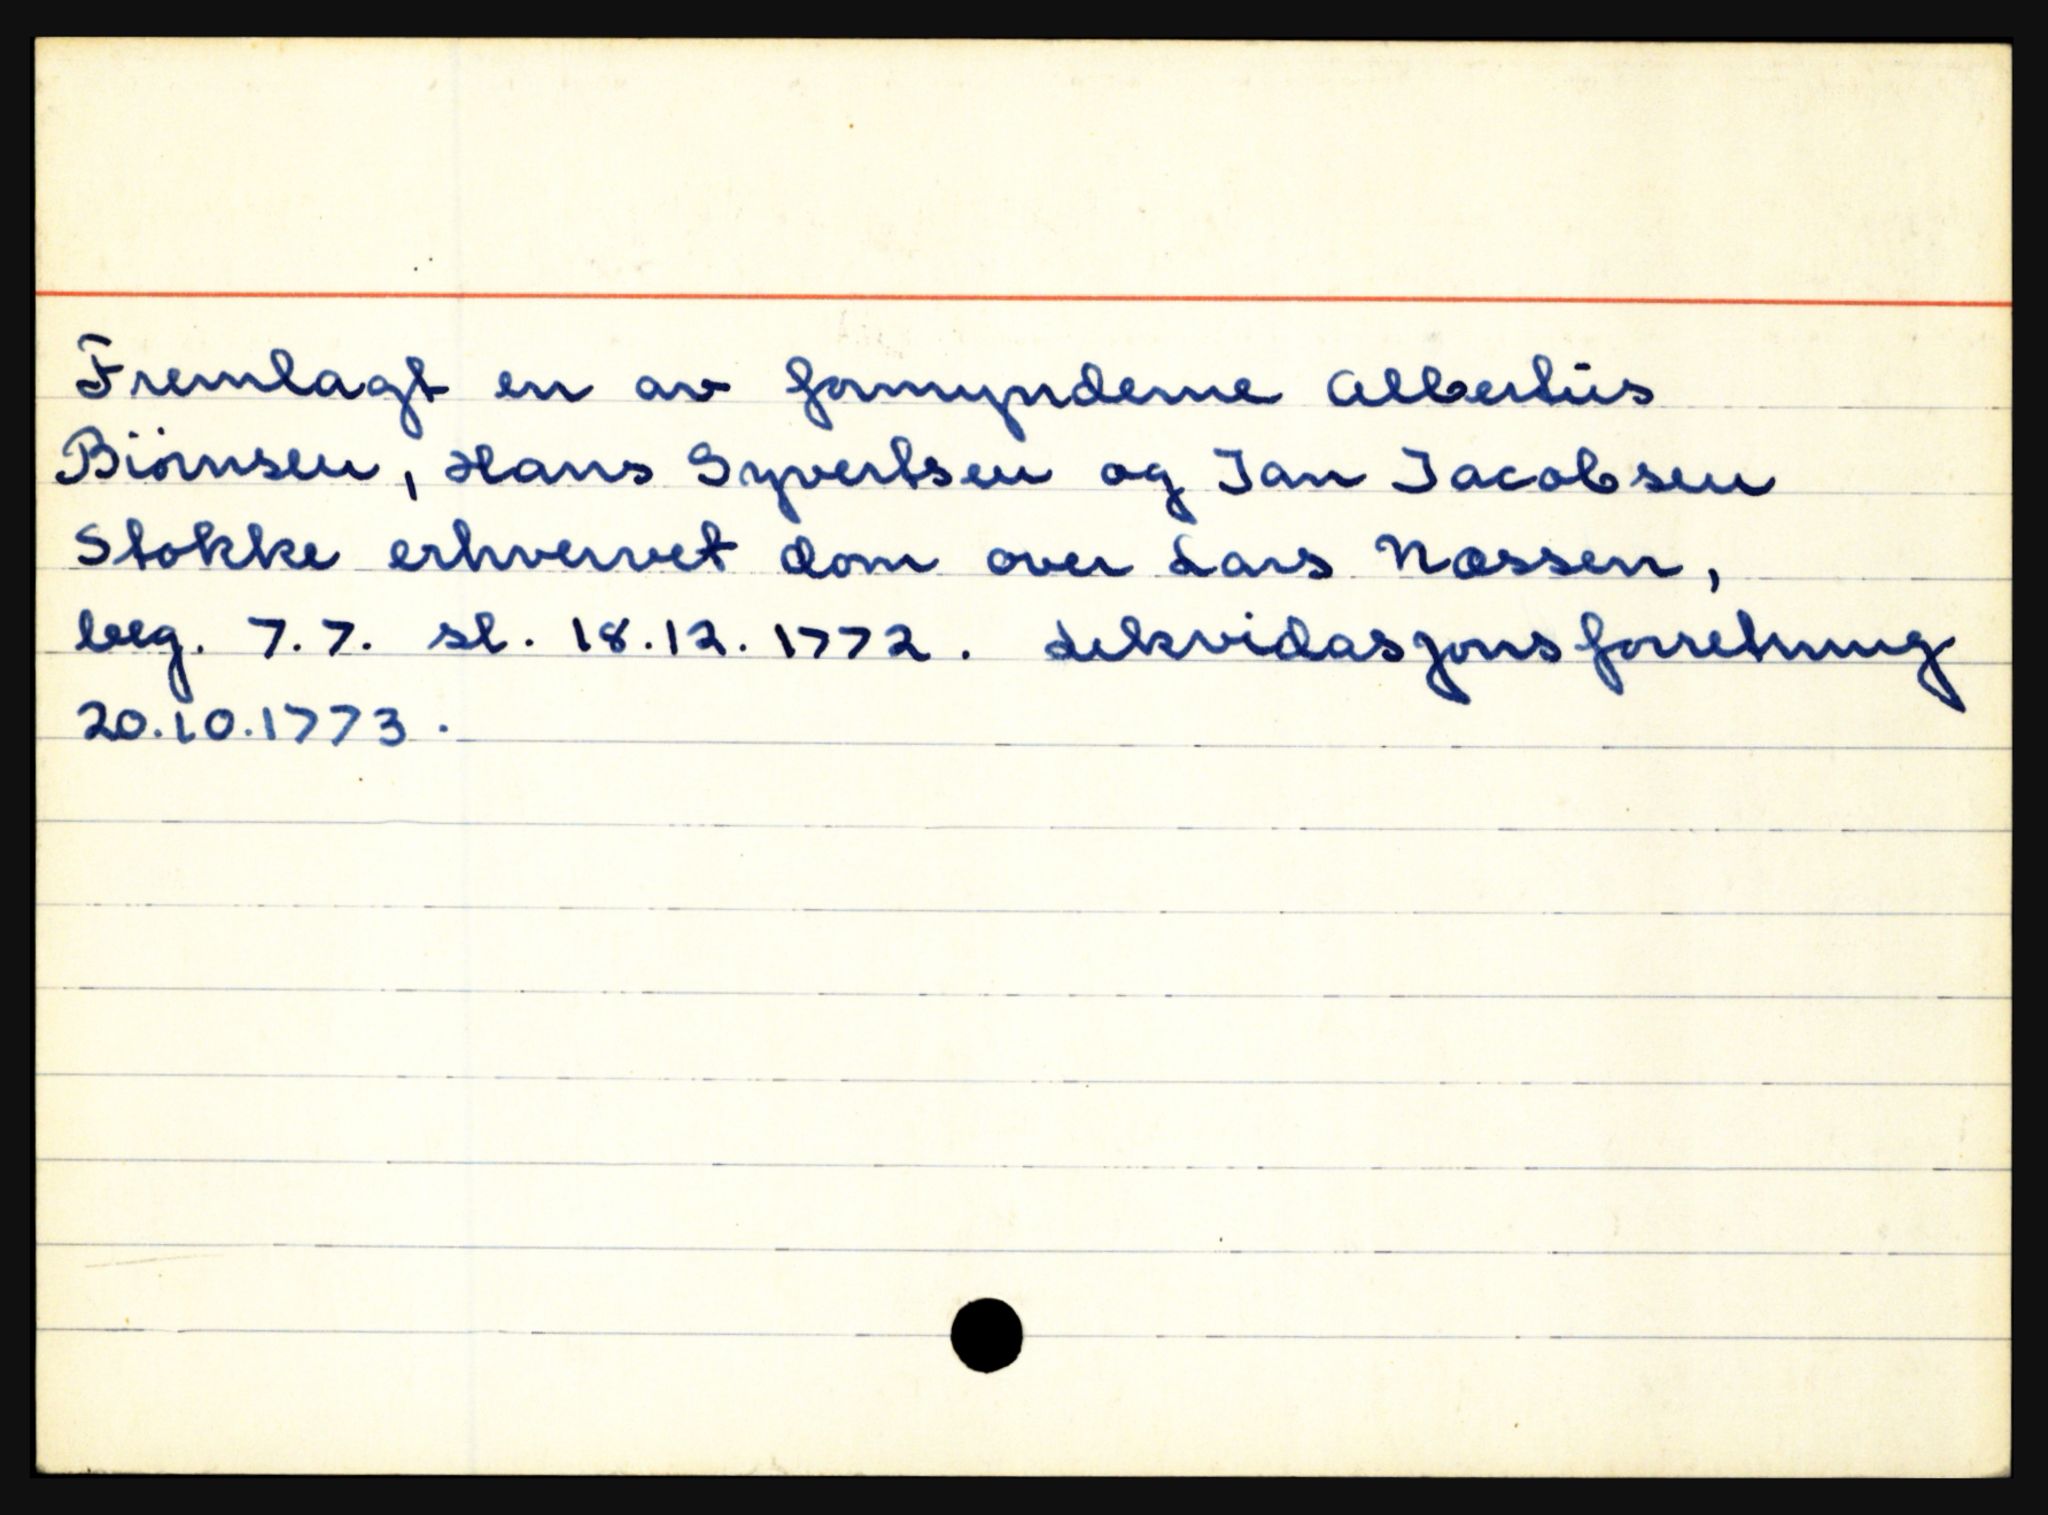 Fremlagt en av formynderne Albertus
Biörnsen, Hans Syvertsen og Jan Jacobsen
Stokke erhvervet dom over Lars Næssen,
beg. 7.7. sl. 18.12.1772. Likvidasjonsforretning
20.10.1773.